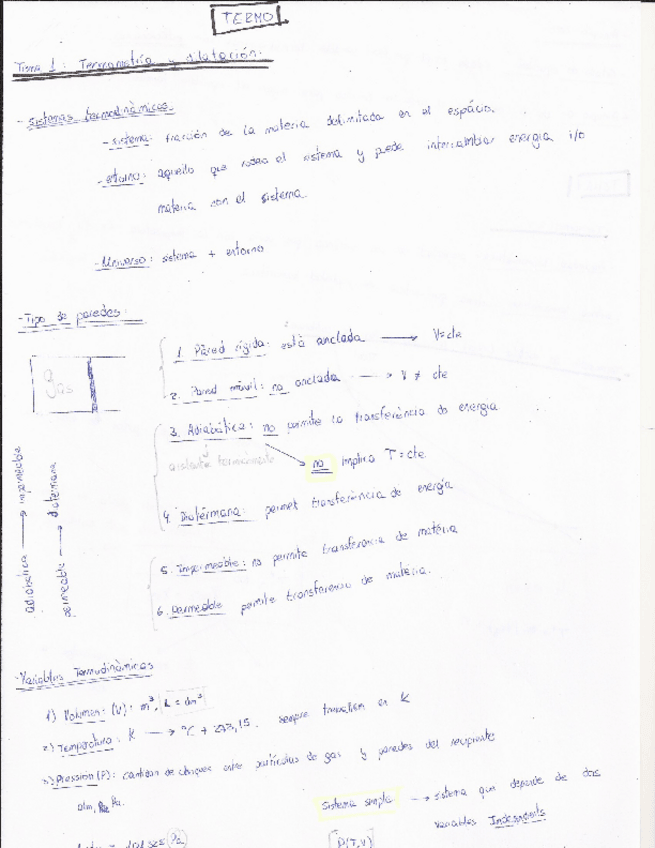 TERMO
Tema 1: Termometría y dilatación.
- Sistemas termodinàmicos.
- sistema: fracción de la materia delimitada en el espacio.
- entorno: aquello que rodea el sistema y puede intercambiar energia i/o
materia con el sistema.
- Universo: sistema + entorno
- Tipo de paredes:
Gas
1. Pared rígida: está anclada → V=cte
2. Pared móvil: no anclada → V ≠ cte
3. Adiabática: no permite la transferència de energia
aislante termicamente
no implica T=cte.
4. Diatèrmana: permet transferència de energía
5. Impermeable: no permite transferencia de matèria
6. Permeable permite transferencia de matèria.
adiabática → impermeable
permeable → diatermana
- Variables Termodinàmicas
1) Volumen: (V): m³, L = dm³
2) Temperatura: K → ºC + 273,15. sempre en K
3) Pression (P): cantidad de choques entre partículas de gas y paredes del recipiente
atm, Pa.
Sistema simple → sistema que depende de dos
variables Independents
Pa
P(T,V)